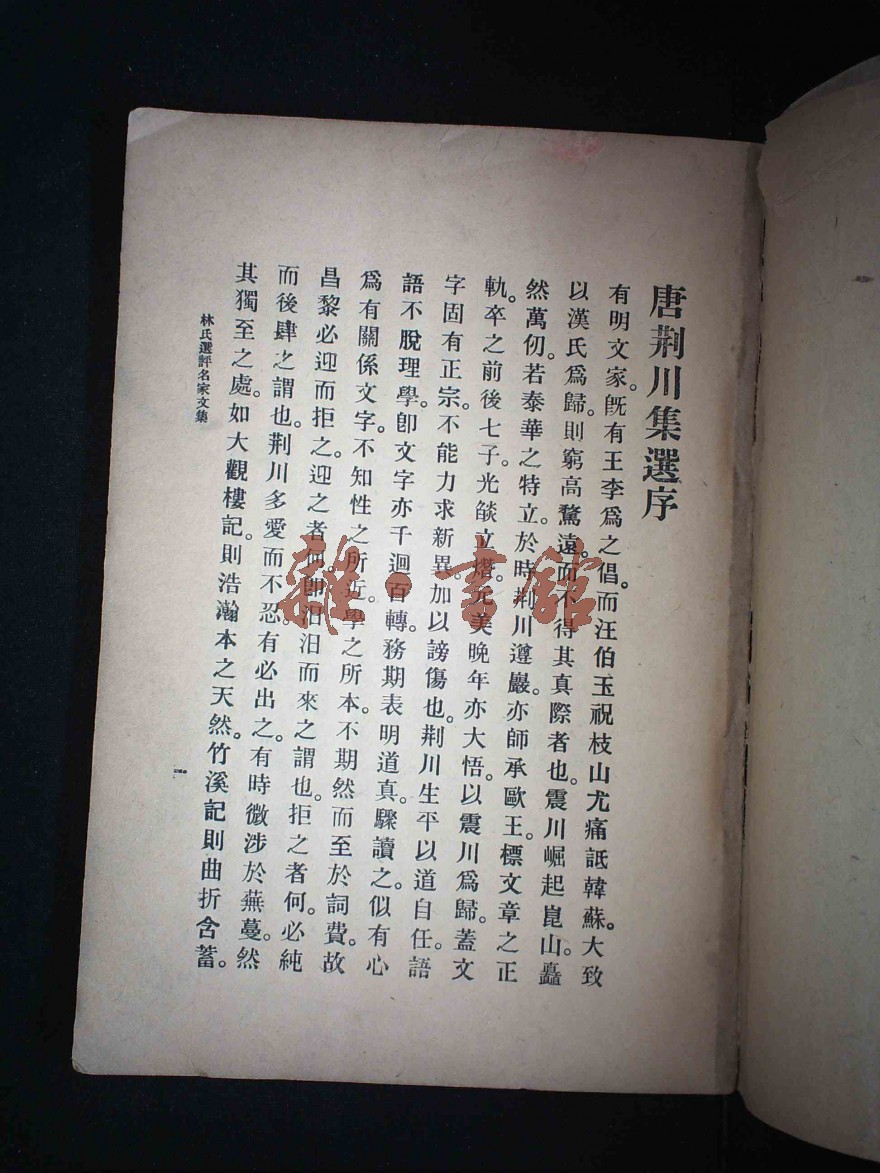 唐荆川集選序
有明文家。旣有王李爲之倡。而汪伯玉祝枝山尤痛詆韓蘇。大致
以漢氏爲歸。則窮高騖遠。而不得其真際者也。震川崛起崑山。矗
然萬仞。若泰華之特立。於時荆川遵巖。亦師承歐王。標文章之正
軌。卒之前後七子。光燄立熸。元美晚年亦大悟。以震川爲歸。蓋文
字固有正宗。不能力求新異。加以謗傷也。荆川生平以道自任。語
語不脫理學。卽文字亦千迴百轉。務期表明道真。驟讀之。似有心
爲有關係文字。不知性之所近。學之所本。不期然而至於詞費。故
昌黎必迎而拒之。迎之者何。卽汩汩而來之謂也。拒之者何。必純
而後肆之謂也。荆川多愛而不忍。有必出之。有時微涉於蕪蔓。然
其獨至之處。如大觀樓記。則浩瀚本之天然。竹溪記則曲折含蓄。
林氏選評名家文集
一
雜·書館